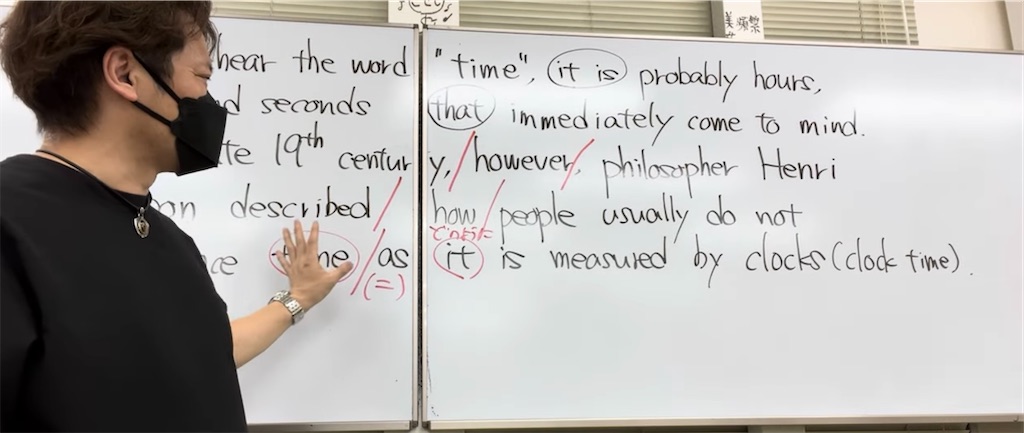 hear the word "time", it is probably hours,
seconds that immediately come to mind.
19th century, however, philosopher Henri
described how people usually do not
どのように
as it is measured by clocks (clock time).
(=)